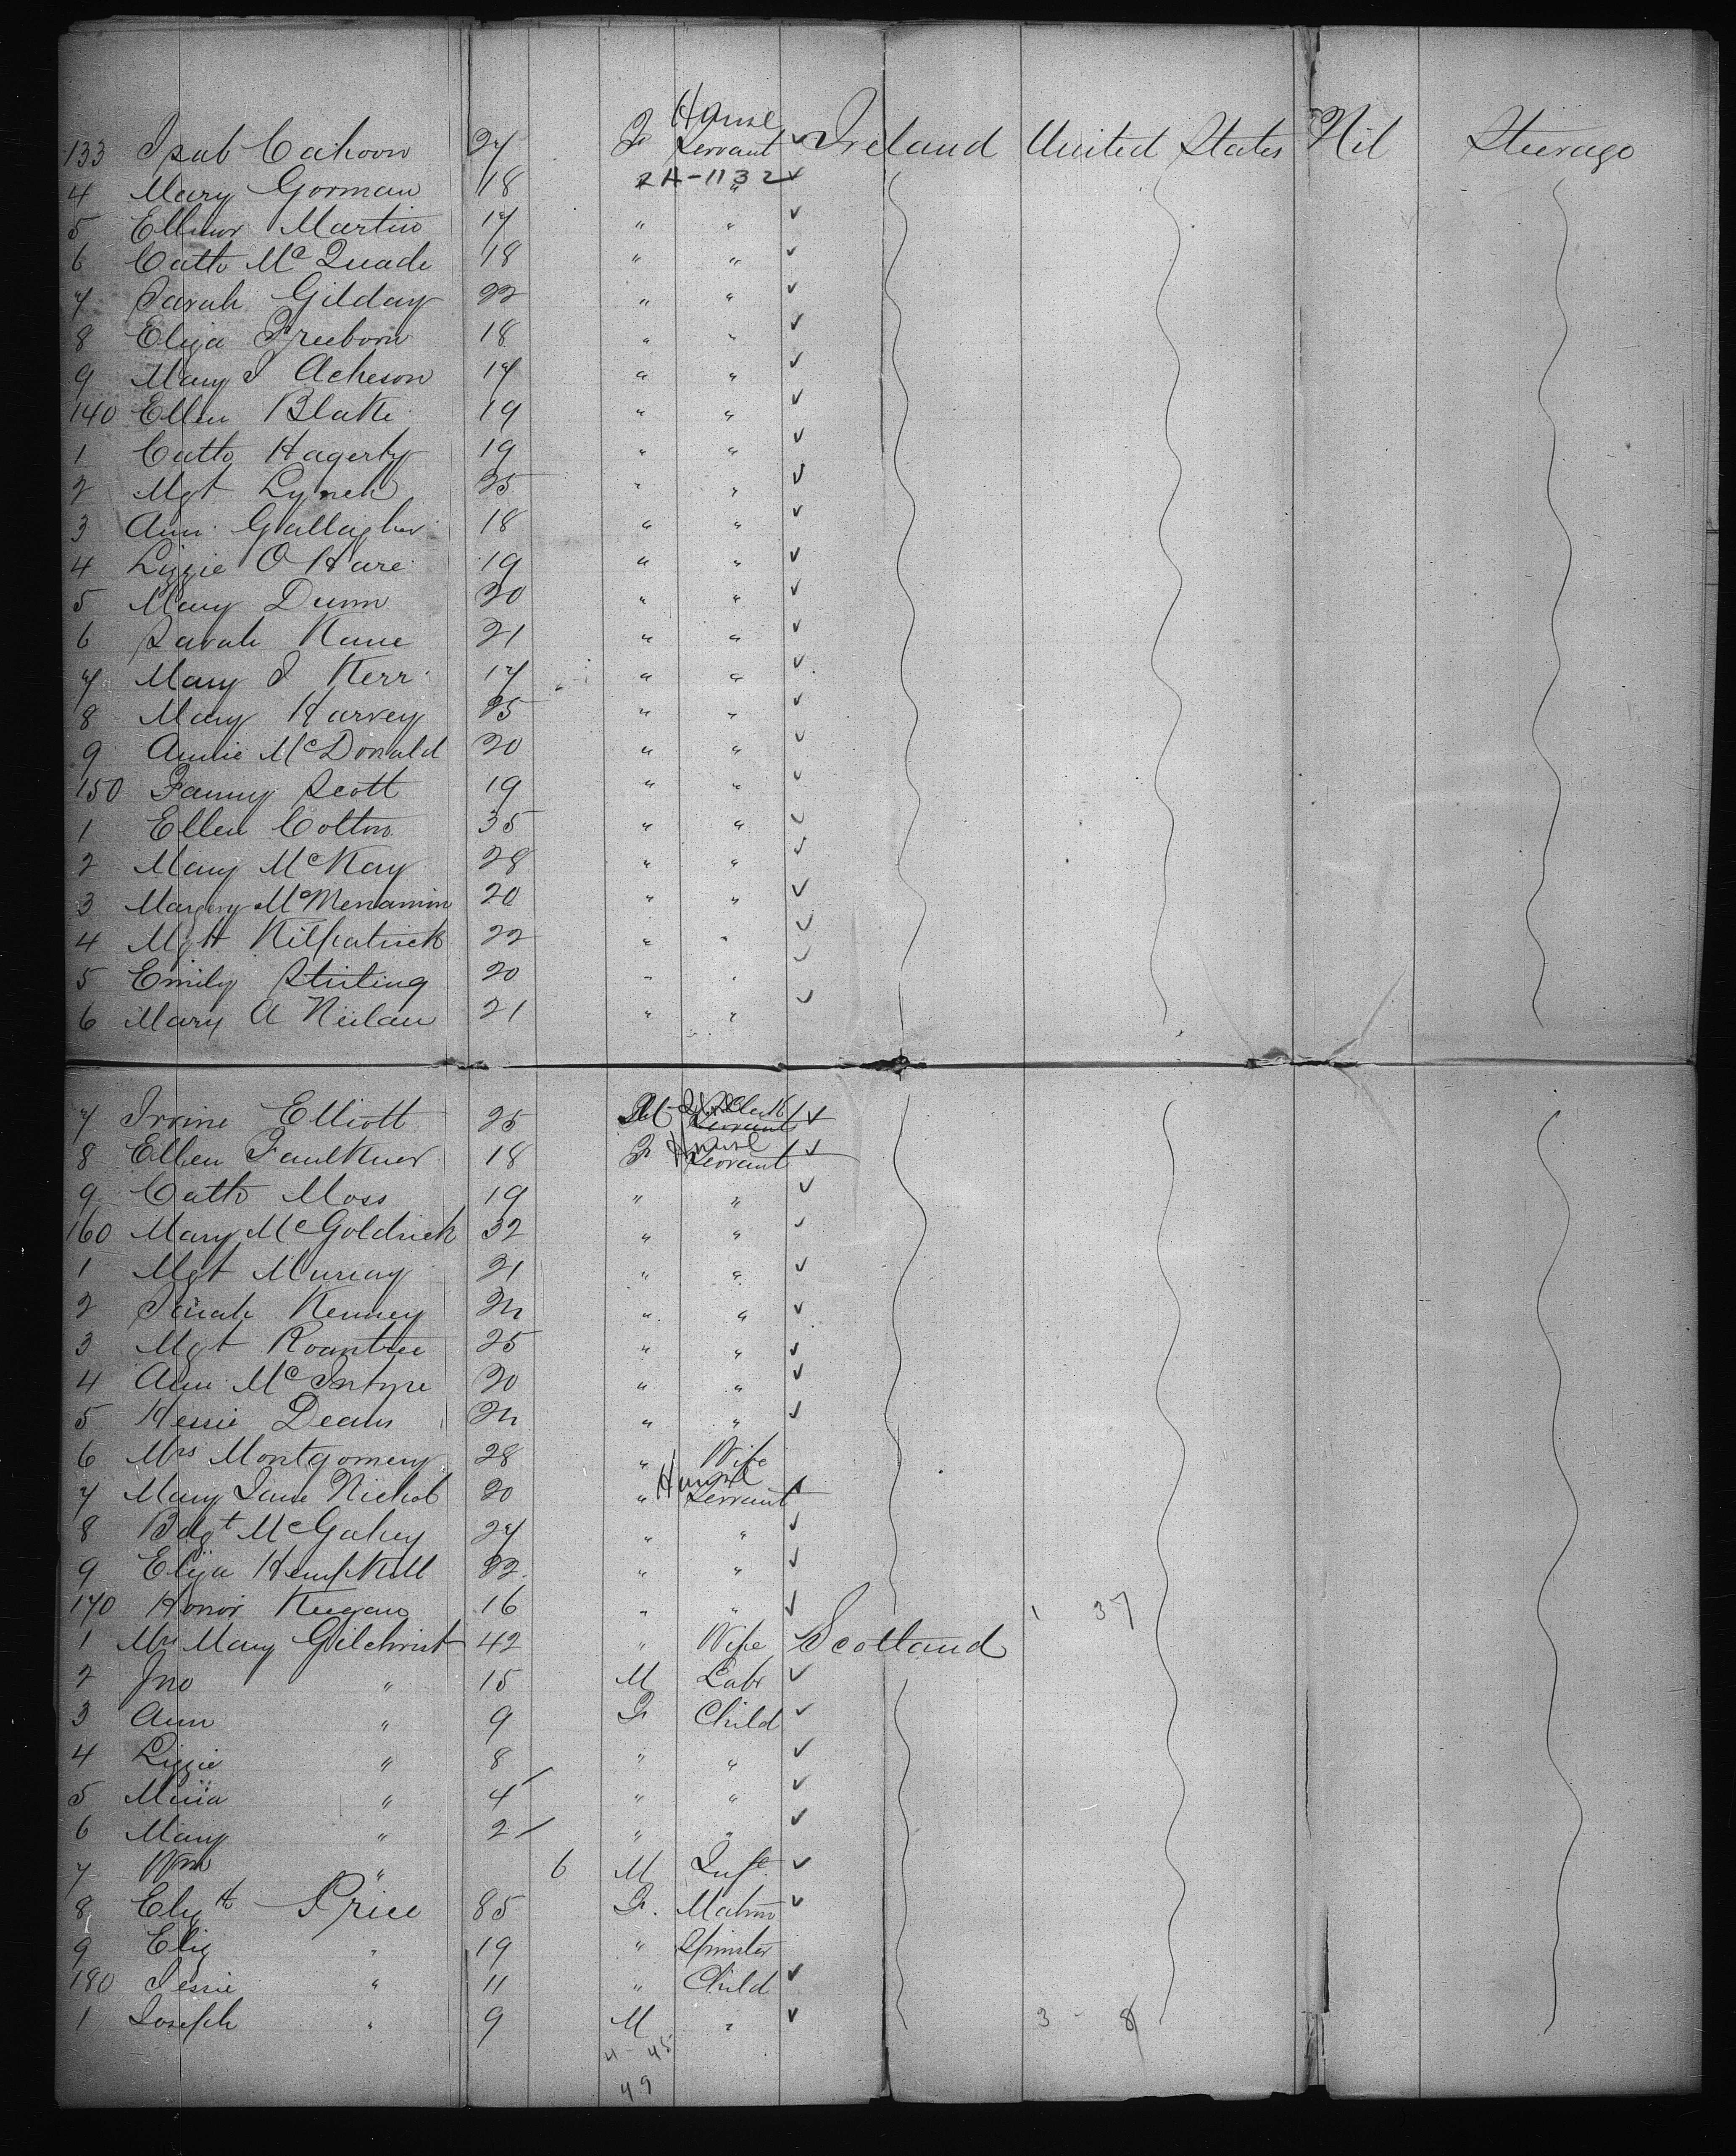 133 Isab Cahoon 27 F House Servant ✓ Ireland United States Nil Steerage
4 Mary Gorman 18 2A-1132 " ✓
5 Ellinor Martin 17 " " ✓
6 Cath McQuade 18 " " ✓
7 Sarah Gilday 22 " " ✓
8 Eliza Freeborn 18 " " ✓
9 Mary J Acheson 17 " " ✓
140 Ellen Blake 19 " " ✓
1 Cath Hagerty 19 " " ✓
2 Mgt Lynch 25 " " ✓
3 Ann Gallagher 18 " " ✓
4 Lizzie O Hare 19 " " ✓
5 Mary Dunn 20 " " ✓
6 Sarah Kane 21 " " ✓
7 Mary J Kerr 17 " " ✓
8 Mary Harvey 25 " " ✓
9 Annie McDonald 20 " " ✓
150 Fanny Scott 19 " " ✓
1 Ellen Colton 35 " " ✓
2 Mary McKay 28 " " ✓
3 Margery McMenamin 20 " " ✓
4 Mgt Kilpatrick 22 " " ✓
5 Emily Stirling 20 " " ✓
6 Mary A Neilan 21 " " ✓
7 Irvine Elliott 25 M Clerk Servant ✓
8 Ellen Faulkner 18 F House Servant ✓
9 Cath Moss 19 " " ✓
160 Mary McGoldrick 32 " " ✓
1 Mgt Murray 21 " " ✓
2 Sarah Kenney 24 " " ✓
3 Mgt Rountree 25 " " ✓
4 Ann McIntyre 20 " " ✓
5 Hessie Deans 24 " " ✓
6 Mrs Montgomery 28 " Wife
7 Mary Jane Nichol 20 " House Servant
8 Bdgt McGahey 27 " " ✓
9 Eliza Hemphill 22 " " ✓
170 Honor Keegan 16 " " ✓ 1 37
1 Mrs Mary Gilchrist 42 " Wife Scotland
2 Jno " 15 M Labr ✓
3 Ann " 9 F Child ✓
4 Lizzie " 8 " " ✓
5 Mina " 4 " " ✓
6 Mary " 2 " " ✓
7 Wm " 6 M Inft ✓
8 Elizth Price 85 F. Matron ✓
9 Eliz " 19 " Spinster
180 Jessie " 11 " Child ✓
1 Joseph " 9 M " ✓ 3 - 8
4 - 45
49